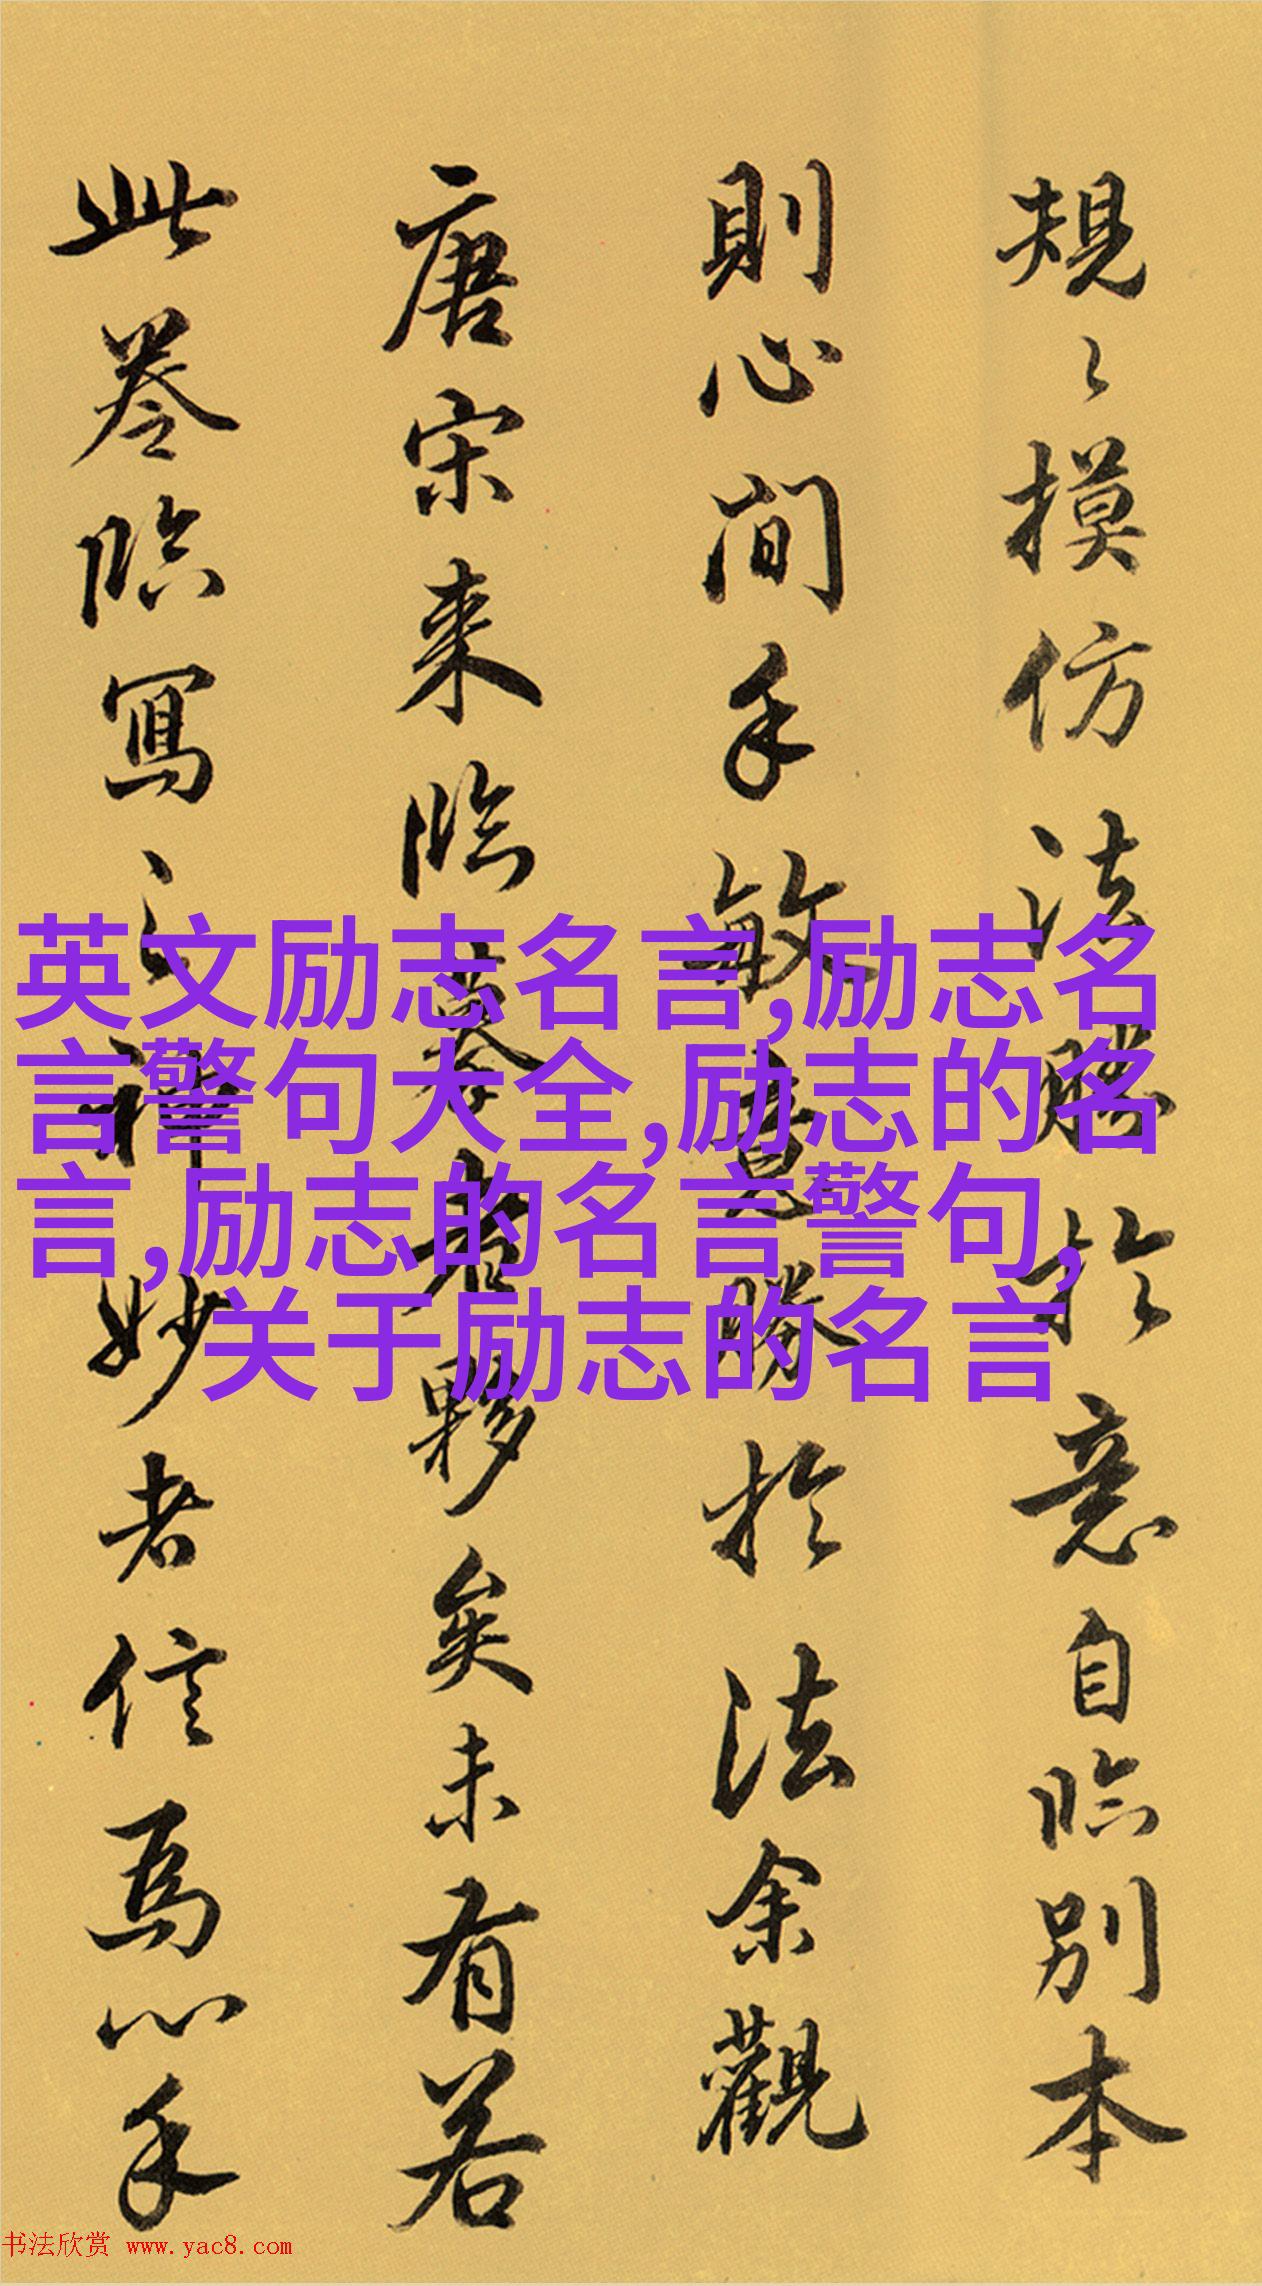 規〻摸仿法勝於意自臨別本
則心閒手敏意勝於法余觀
唐宋来臨摹者夥矣未有若
此卷臨寫之神妙者信爲心手
英文励志名言,励志名
言警句大全,励志的名
言,励志的名言警句,
关于励志的名言
书法欣赏 www.yac8.com